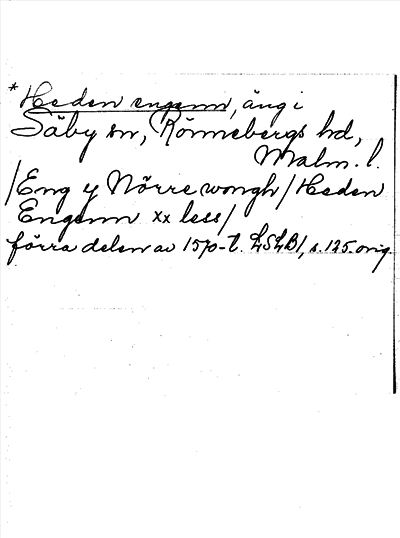 *Heden engenn, äng i
Säby sn, Rönnebergs hd,
Malm. l.
/Eng y Nörre wongh/Heden
Engenn xx less/
förra delen av 1570-t. LSLB1, s. 125. orig.